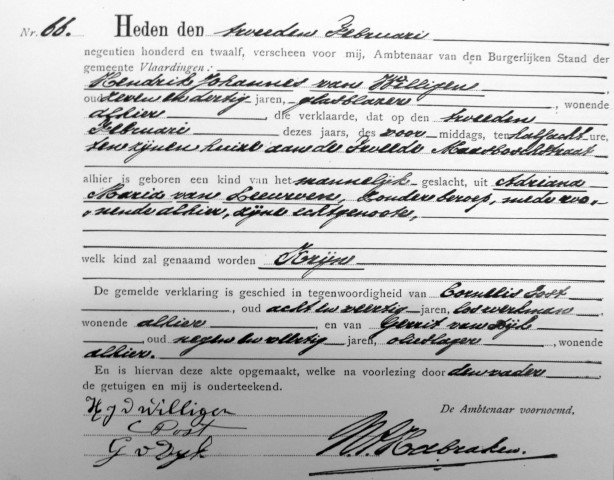 Nr. 66. Heden den tweeden Februari
negentien honderd en twaalf, verscheen voor mij, Ambtenaar van den Burgerlijken Stand der
gemeente Vlaardingen:
Hendrik Johannes van Willigen
oud zeven en dertig jaren, glasblazer, wonende
alhier, die verklaarde, dat op den tweeden
Februari dezes jaars, des voor middags, ten half acht ure,
ten zijnen huize aan de Tweede Maasboschstraat
alhier is geboren een kind van het mannelijk geslacht, uit Adriana
Maria van Leeuwen, zonder beroep, mede wo-
nende alhier, zijne echtgenoote,
welk kind zal genaamd worden Krijn
De gemelde verklaring is geschied in tegenwoordigheid van Cornelis Post
, oud acht en veertig jaren, los werkman
wonende alhier, en van Gerrit van Dijk
, oud negen en veertig jaren, olieslager, wonende
alhier.
En is hiervan deze akte opgemaakt, welke na voorlezing door den vader
de getuigen en mij is onderteekend.
H J v Willigen
De Ambtenaar voornoemd,
C Post
G v Dyk
Habraken.